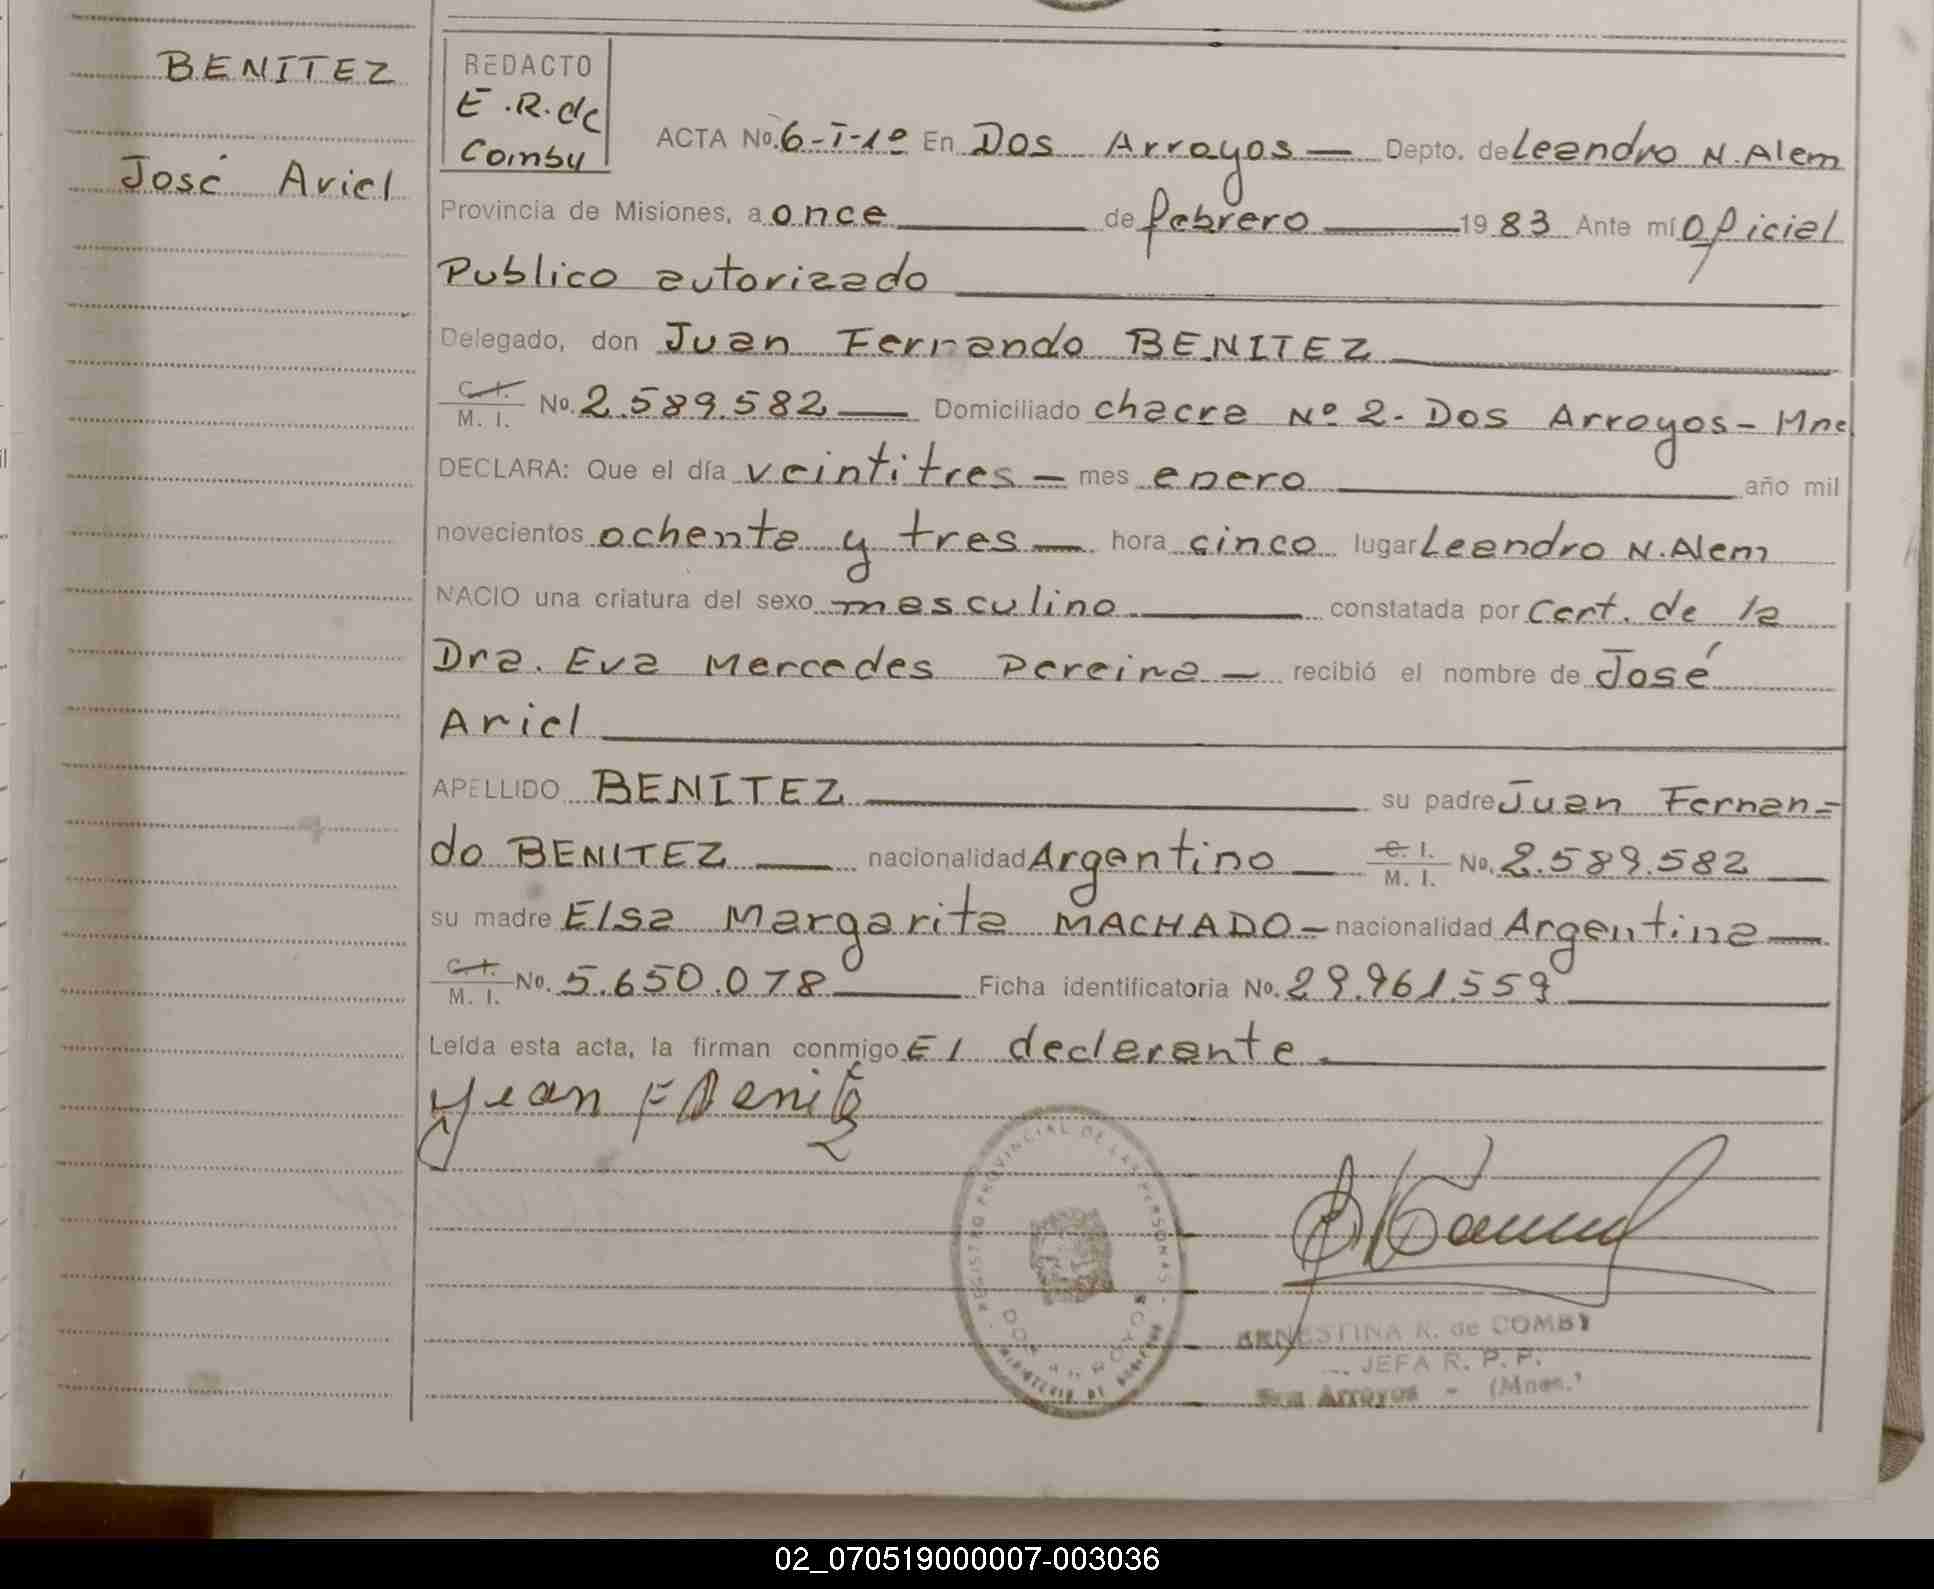 BENITEZ
José Ariel
REDACTO
E.R.de
Comby
ACTA No. 6-I-1º En Dos Arroyos — Depto. de Leandro N. Alem
Provincia de Misiones, a once de febrero 1983 Ante mí Oficial
Publico autorizado
Delegado, don Juan Fernando BENITEZ
C. I.
M. I. No. 2.589.582 — Domiciliado chacra Nº 2- Dos Arroyos- Mnes
DECLARA: Que el día veintitres — mes enero año mil
novecientos ochenta y tres — hora cinco lugar Leandro N. Alem
NACIO una criatura del sexo masculino constatada por Cert. de la
Dra. Eva Mercedes Pereira — recibió el nombre de José
Ariel
APELLIDO BENITEZ su padre Juan Fernan=
do BENITEZ — nacionalidad Argentino — C. I.
M. I. No. 2.589.582
su madre Elsa Margarita MACHADO — nacionalidad Argentina —
C. I.
M. I. No. 5.650.078 Ficha identificatoria No. 29.961.559
Leída esta acta, la firman conmigo El declarante.
Juan F Benitez
REGISTRO PROVINCIAL DE LAS PERSONAS
DOS ARROYOS
MINISTERIO DE GOBIERNO
ERNESTINA R. de COMBY
JEFA R. P. P.
Dos Arroyos - (Mnes.)
02_070519000007-003036